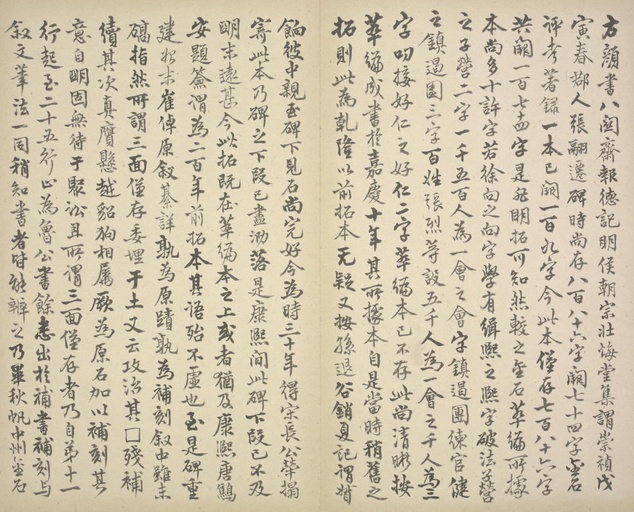 右顏書八関齋報德記明侯朝宗壯悔堂集謂崇禎戊
寅春鄰人張翮遷碑時尚存八百八十六字闕七十四字金石
評考著録一本已闕一百九字今此本僅存七百八十六字
共闕一百七十四字是非明拓可知然較之金石萃編所據
本尚多十許字若徐向之向字學有緝熙之熙字破法子營
之子營二字一千五百人為一會之會字鎮遏團練官健
之鎮遏團三字百姓張烈等設五千人為一會之千人為三
字叨接好仁之好仁二字萃編本已不存此尚清晰按
萃編成書於嘉慶十年其所據本自是當時稍舊之
拓則此為乾隆以前拓本无疑又按孫退谷銷夏記謂
餉彼中親至碑下見石尚完好今為時三十年得宋長公華搨
寄此本乃碑之下段已盡泐落是康熙間此碑下段已不及
明末遠甚今此拓既在萃編本之上或者猶及康熙唐鷦
安題簽謂為二百年前拓本其語殆不虛也至是碑重
建於宋崔倬原叙綦詳孰為原蹟孰為補刻叙中雖未
礭指然所謂三面僅存委埋于土又云攻治其□殘補
續其次真贋懸越貂狗相屬厥為原石加以補刻其
意自明固無待于聚訟且所謂三面僅存者乃自弟十一
行起至二十五行止為魯公書餘悉出於補書補刻与
叙文筆法一同稍知書者皆能辨之乃畢秋帆中州金石